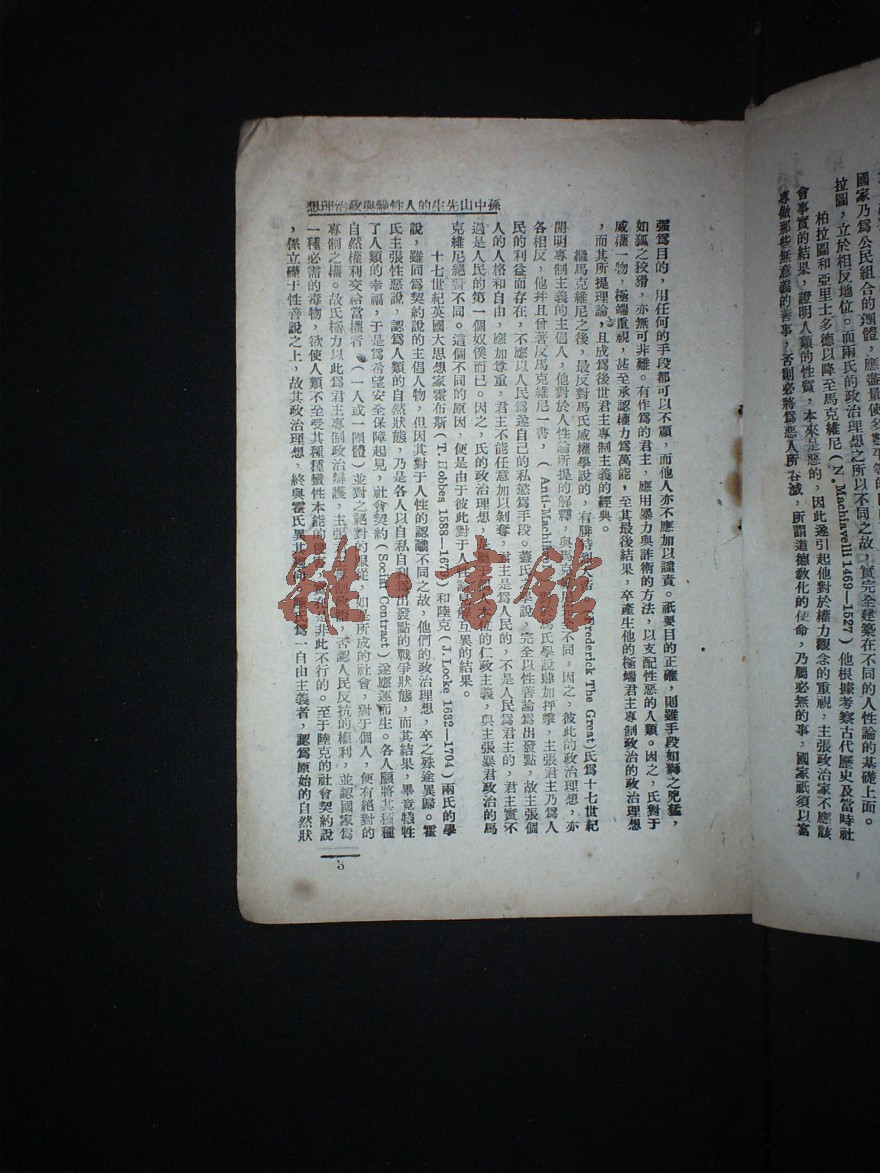 國家乃爲公民組合的團體，應盡量使多數平等的
拉圖，立於相反地位。而兩氏的政治理想之所以不同之故，實完全建築在不同的人性論的基礎上面。
柏拉圖和亞里士多德以降至馬克維尼（N. Machiavelli 1469—1527）他根據考察古代歷史及當時社
會事實的結果，證明人類的性質，本來是惡的，因此遂引起他對於權力觀念的重視，主張政治家不應該
專做那些無意義的善事，否則必將爲惡人所吞滅，所謂道德敎化的使命，乃屬必無的事，國家祇須以富
强爲目的，用任何的手段都可以不顧，而他人亦不應加以譴責。祇要目的正確，則雖手段如獅之兇猛，
如狐之狡猾，亦無可非難。有作爲的君主，應用暴力與詐術的方法，以支配性惡的人類。因之，氏對于
威權一物，極端重視，甚至承認權力爲萬能，至其最後結果，卒產生他的極端君主專制政治的政治理想
，而其所提理論，且成爲後世君主專制主義的經典。
繼馬克維尼之後，最反對馬氏威權學說的，有腓特烈大帝（Frederick The Great）氏爲十七世紀
開明專制主義的主倡人，他對於人性論所提的解釋，與馬克 不同，因之，彼此的政治理想，亦
各相反，他幷且曾著反馬克維尼一書，（Anti-Machia 馬氏學說肆加抨擊，主張君主乃爲人
民的利益而存在，不應以人民爲遂自己的私慾爲手段。蓋氏 學說，完全以性善論爲出發點，故主張個
人的人格和自由，應加尊重，君主不能任意加以剝奪，君主是爲人民的，不是人民爲君主的，君主實不
過是人民的第一個奴僕而已。因之，氏的政治理想， 本位的仁政主義，與主張暴君政治的馬
克維尼絕對不同。這個不同的原因，便是由于彼此對于人性論 互異的結果。
十七世紀英國大思想家霍布斯（T. Hobbes 1588—1679）和陸克（J. Locke 1632—1704）兩氏的學
說，雖同爲契約說的主倡人物，但因其對于人性的認識不同之故，他們的政治理想，卒之殊途異歸。霍
氏主張性惡說，認爲人類的自然狀態，乃是各人以自私自利爲出發點的戰爭狀態，而其結果，畢竟犧牲
了人類的幸福，于是爲希望安全保障起見，社會契約（Social Contract）遂應運而生。各人願將其種種
自然權利交給當權者（一人或一團體）並對之絕對的服從，如是所成的社會，對于個人，便有絕對的
專制之權。故氏極力以此爲君主專制政治辯護，主張 ，否認人民反抗的權利，並認國家爲
一種必需的毒物，欲使人類不至受其種種獸性本能的 非此不行的。至于陸克的社會契約說
，係立礎于性善說之上，故其政治理想，終與霍氏異其 氏爲一自由主義者，認爲原始的自然狀
孫中山先生的人性論與政治理想
5
雜·書館